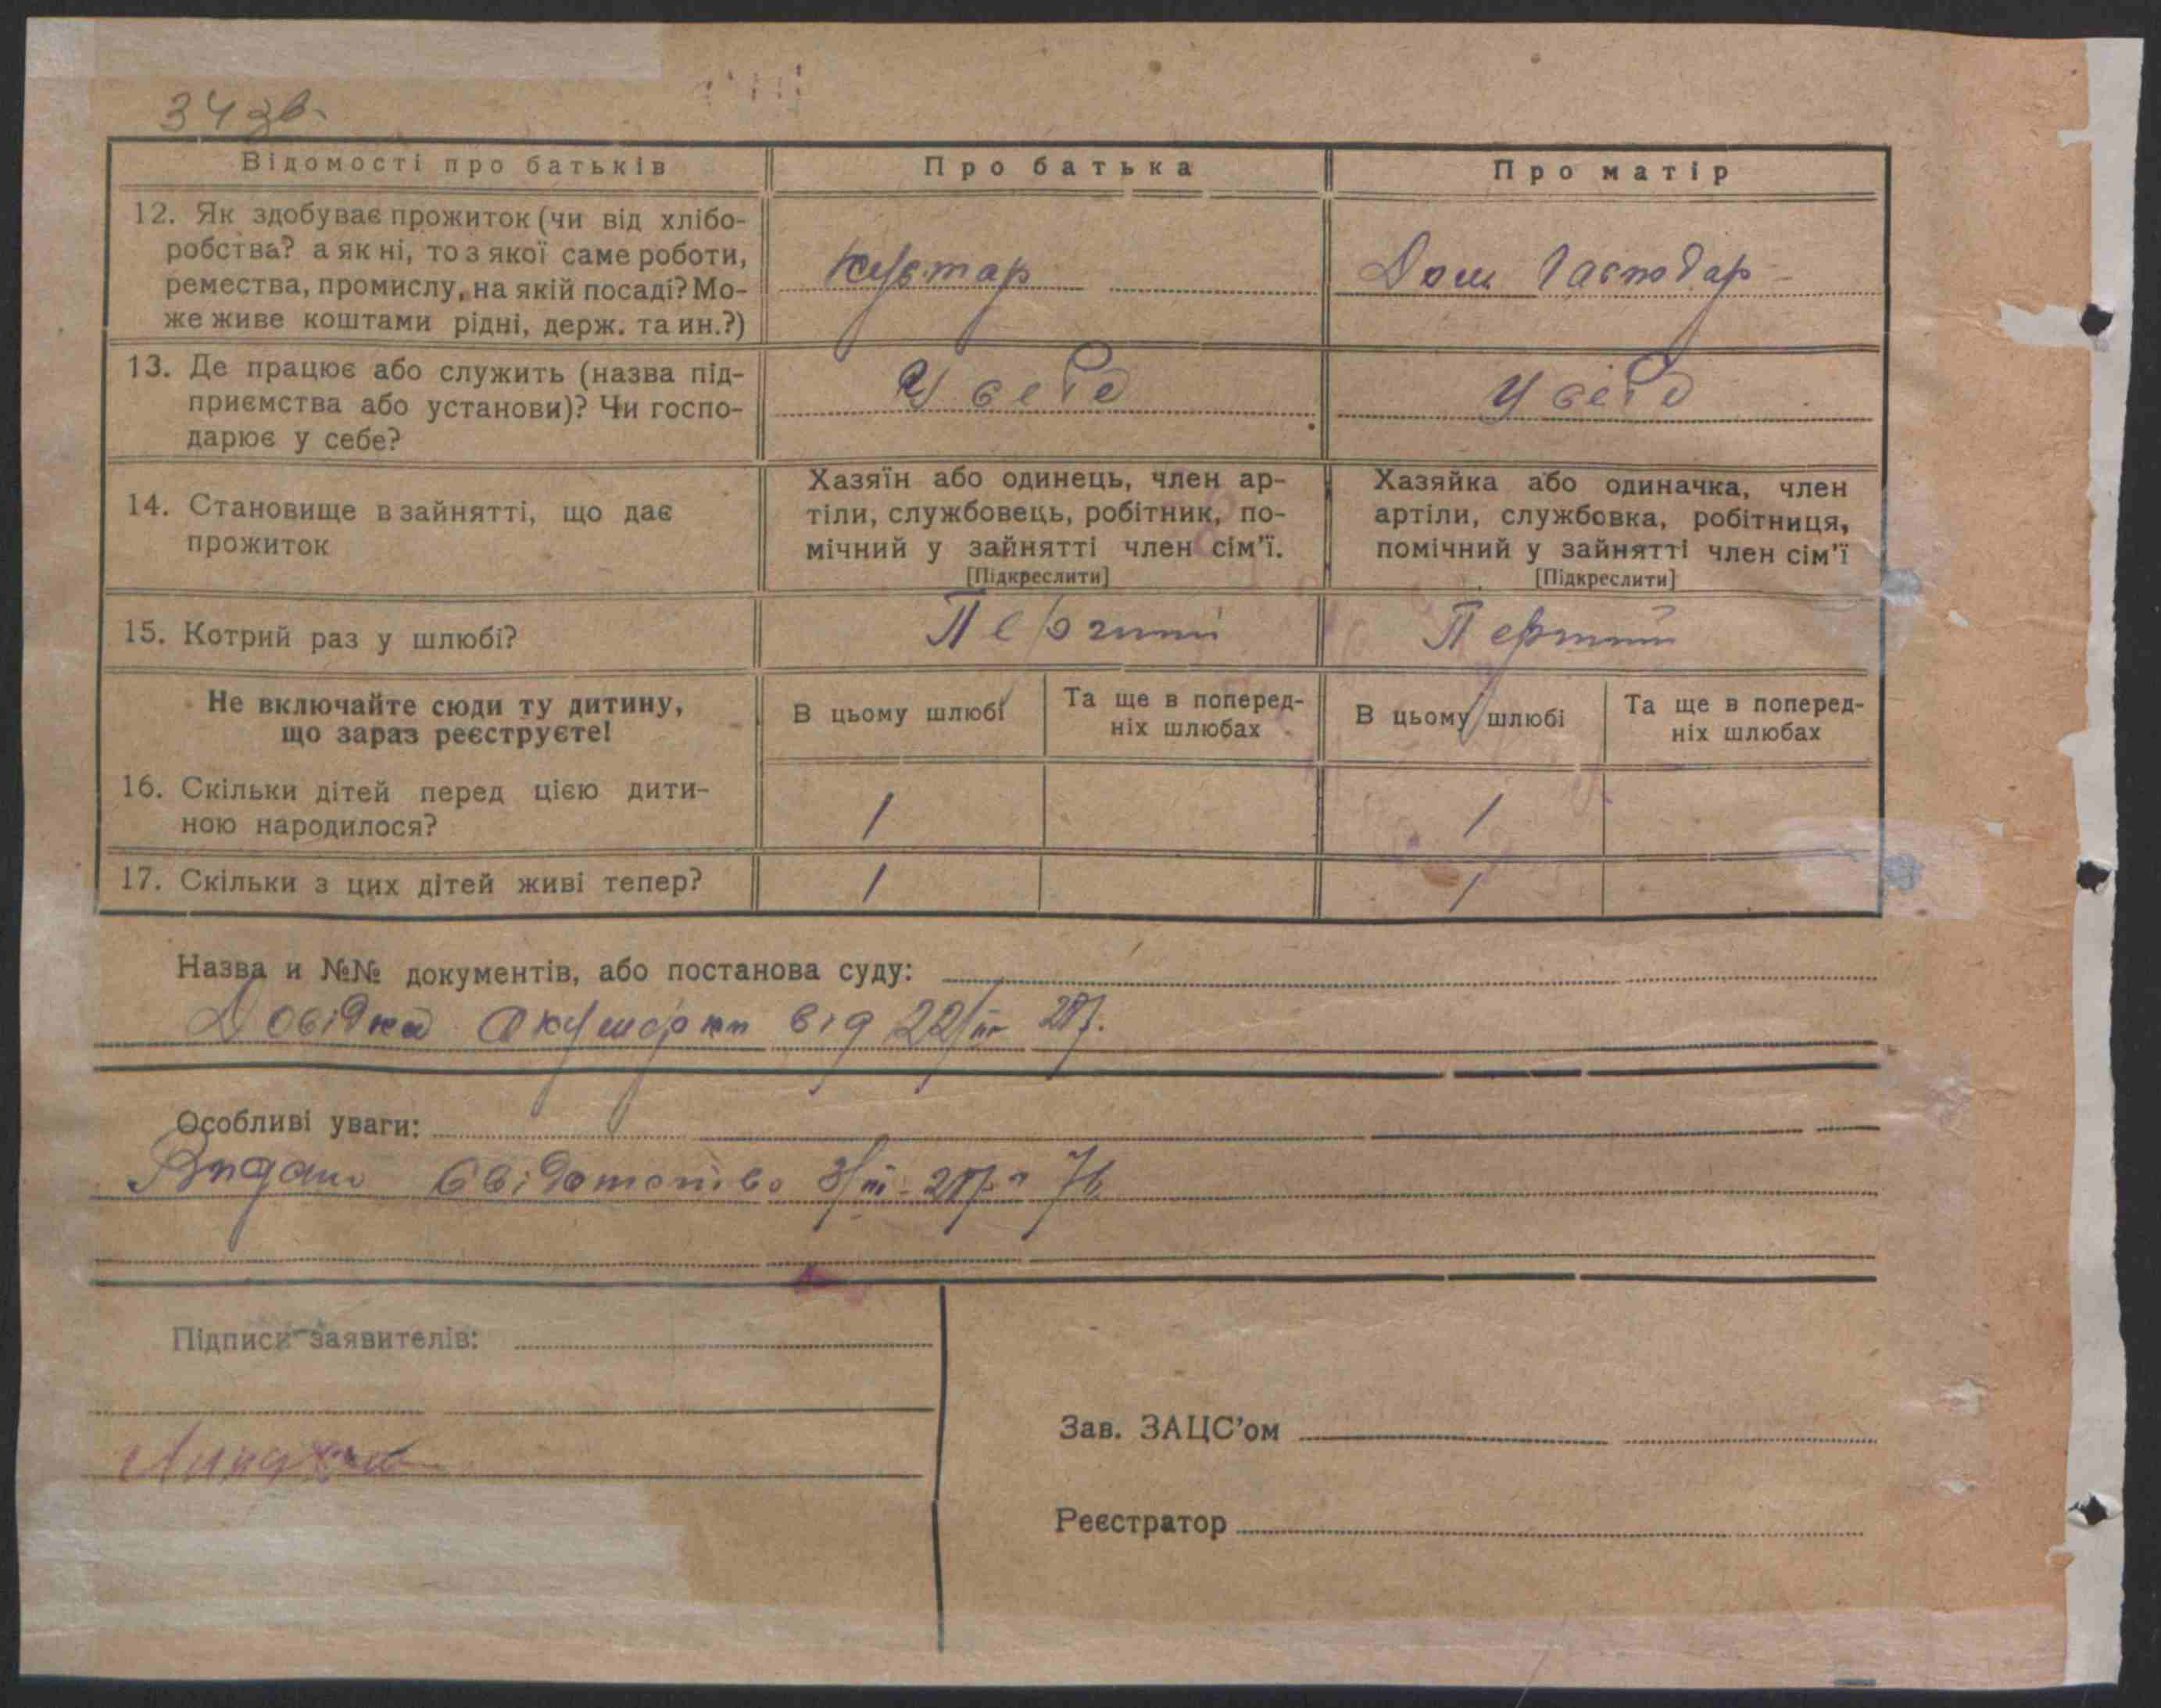 34 зв.
Відомості про батьків
Про батька
Про матір
12. Як здобуває прожиток (чи від хлібо-
робства? а як ні, то з якої саме роботи,
ремества, промислу, на якій посаді? Мо-
же живе коштами рідні, держ. та ин.?)
кустар
Дом Гасподар
13. Де працює або служить (назва під-
приємства або установи)? Чи госпо-
дарює у себе?
У себе
У себе
14. Становище в зайнятті, що дає
прожиток
Хазяїн або одинець, член ар-
тіли, службовець, робітник, по-
мічний у зайнятті член сім'ї.
[Підкреслити]
Хазяйка або одиначка, член
артіли, службовка, робітниця,
помічний у зайнятті член сім'ї
[Підкреслити]
15. Котрий раз у шлюбі?
Перший
Перший
Не включайте сюди ту дитину,
що зараз реєструєте!
В цьому шлюбі
Та ще в поперед-
ніх шлюбах
В цьому шлюбі
Та ще в поперед-
ніх шлюбах
16. Скільки дітей перед цією дити-
ною народилося?
1
1
17. Скільки з цих дітей живі тепер?
1
1
Назва и №№ документів, або постанова суду:
Довідка Акушорки від 22/III 27р.
Особливі уваги:
Видано Свідотство 3/III - 27р.
Підписи заявителів:
Зав. ЗАЦС'ом
Реєстратор